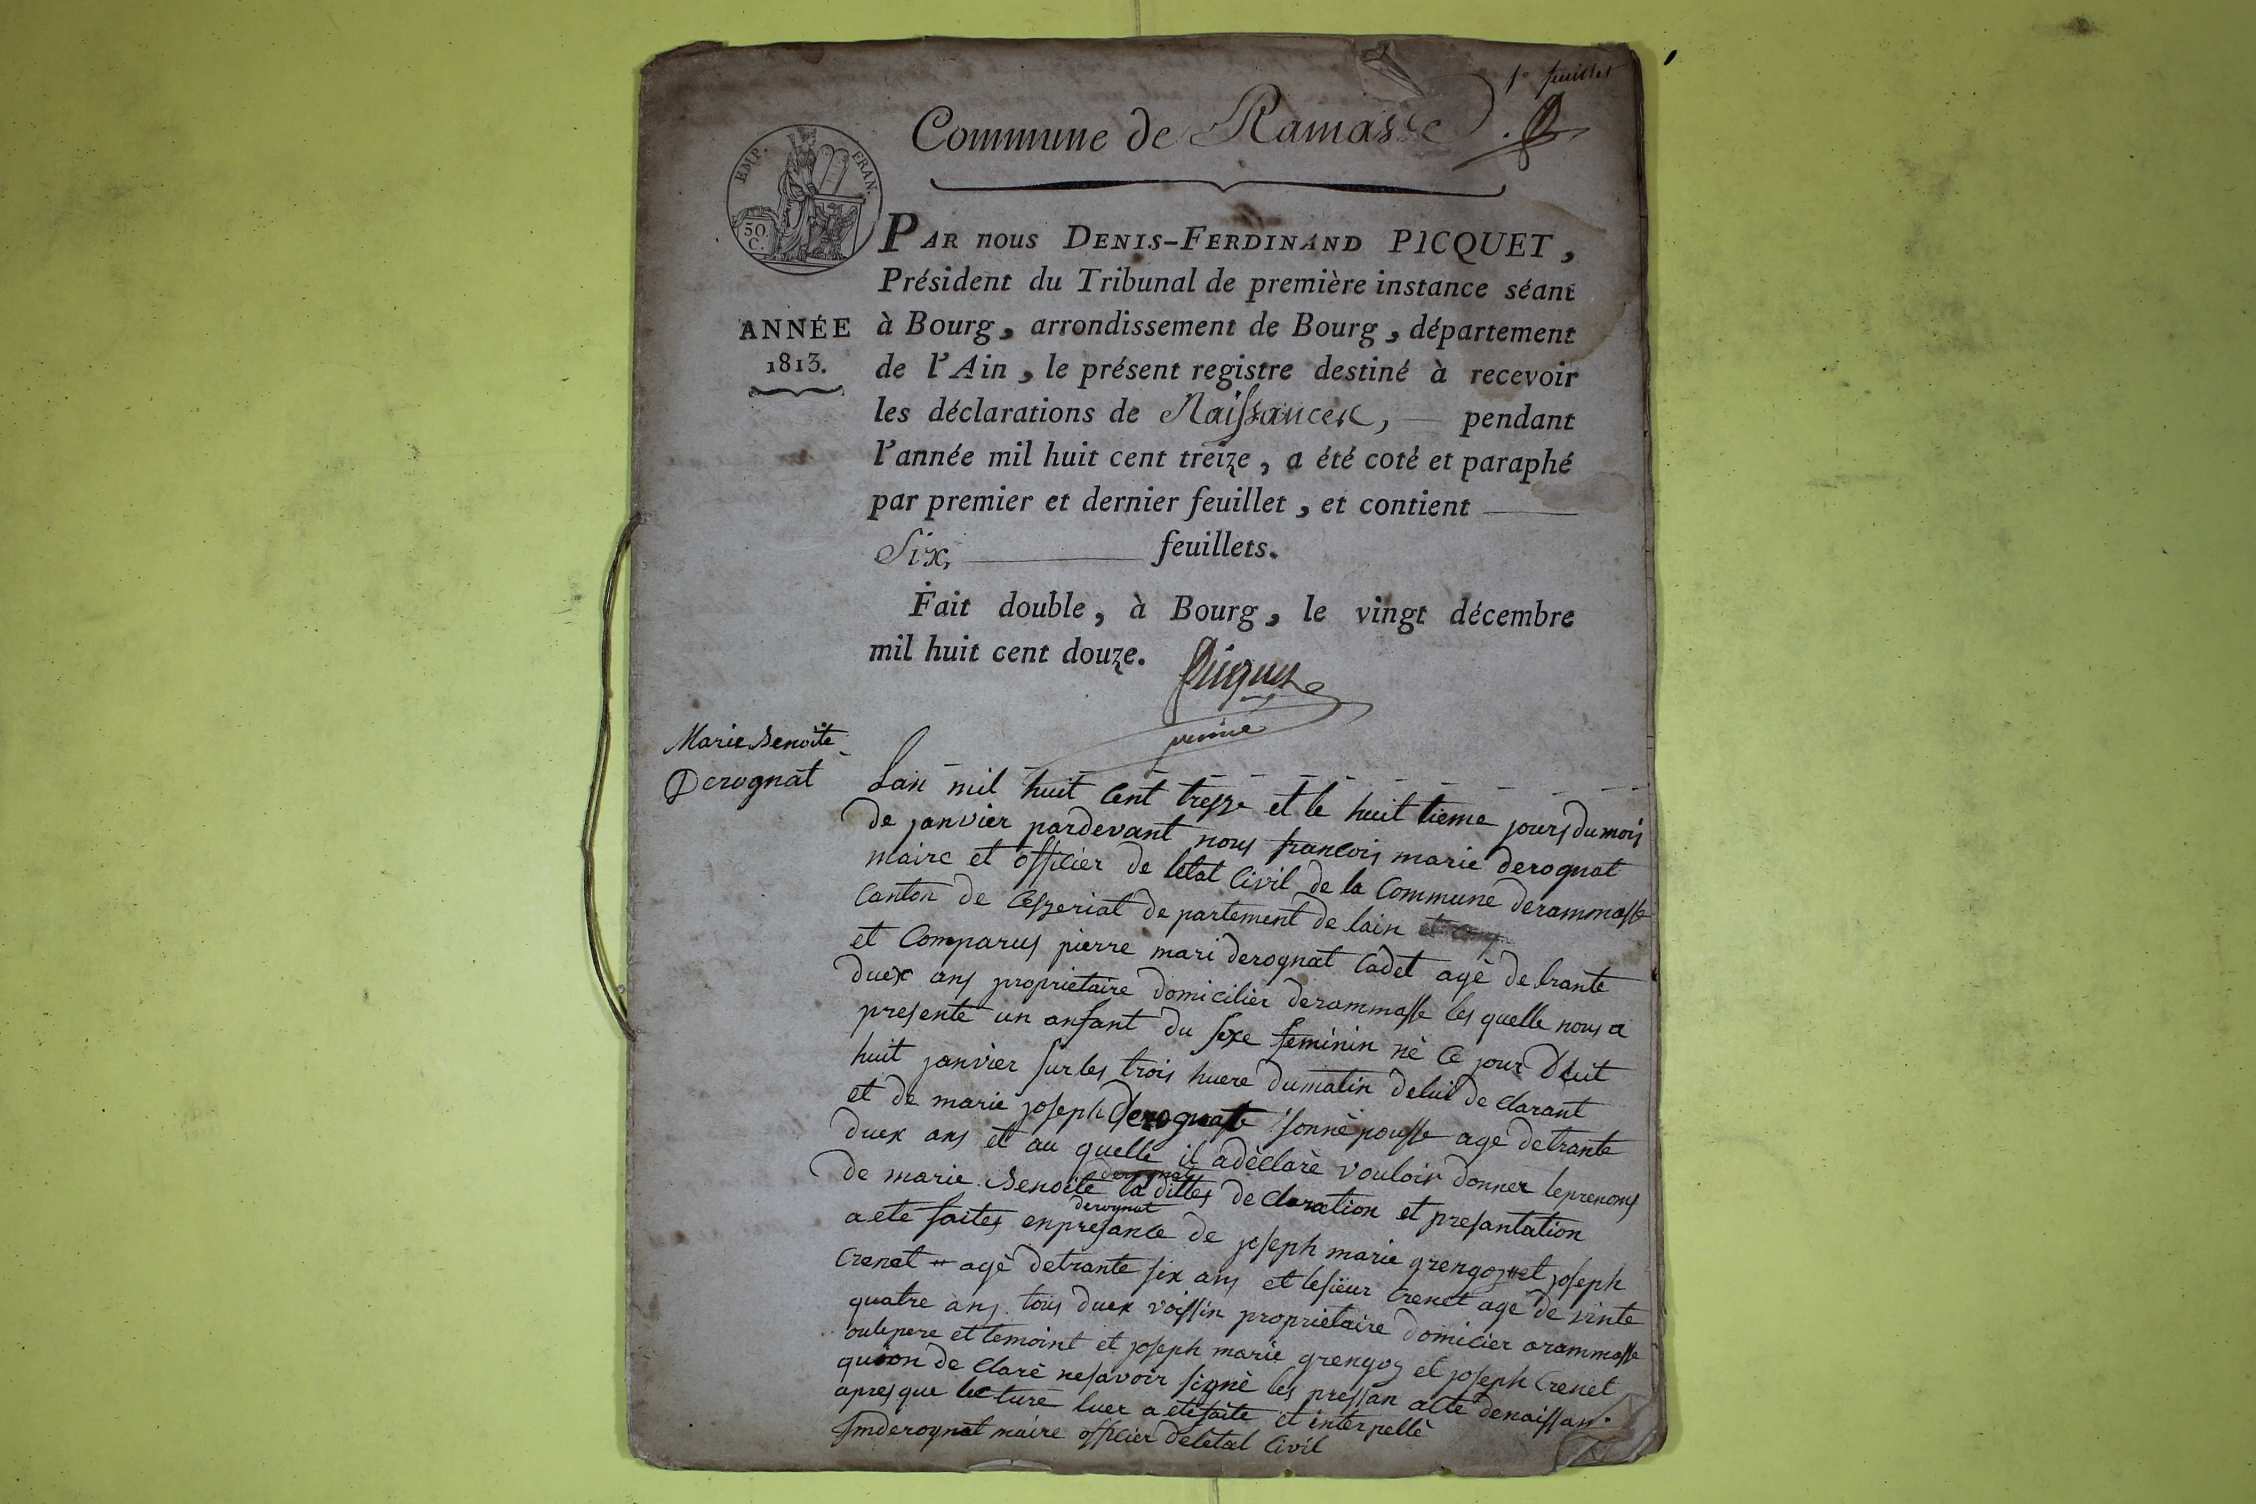 1er feuillet
Commune de Ramasse
EMP. FRAN.
50 C.
PAR nous DENIS-FERDINAND PICQUET,
Président du Tribunal de première instance séant
ANNÉE
1813.
à Bourg, arrondissement de Bourg, département
de l'Ain, le présent registre destiné à recevoir
les déclarations de Naissances, pendant
l'année mil huit cent treize, a été coté et paraphé
par premier et dernier feuillet, et contient
Six, feuillets.
Fait double, à Bourg, le vingt décembre
mil huit cent douze.
Picquet
Marie Benoite
Derognat
Lan mil huit Cent trezze et le huit tieme jours du mois
de janvier pardevant nous francois marie derognat
maire et officier de letat Civil de la Commune derammasse
Canton de Cezzeriat departement de lain
et Comparus pierre mari derognat Cadet agè detrante
duex ans proprietaire domicilier derammasse les quelle nous a
presente un anfant du sexe feminin nè ce jour
huit janvier sur les trois huere dumatin delui de clarant
et de marie joseph Derognate sonnèpousse age detrante
duex ans et au quelle il adèclarè vouloir donner leprenoms
de marie Benoite derognat la dittes de claration et presantation
aete faites enpresance de joseph marie grengoz et joseph
Crenet agè detrante six ans et lesieur Crenet age de vinte
quatre ans tous duex voissin proprietaire domicier arammasse
oulepere et temoint et joseph marie grengoz et joseph Crenet
quion de Clarè nesavoir signè les pressan acte denaissan.
apres que lecture luer a etefaite et interpellè
fmderognat maire officier deletat Civil